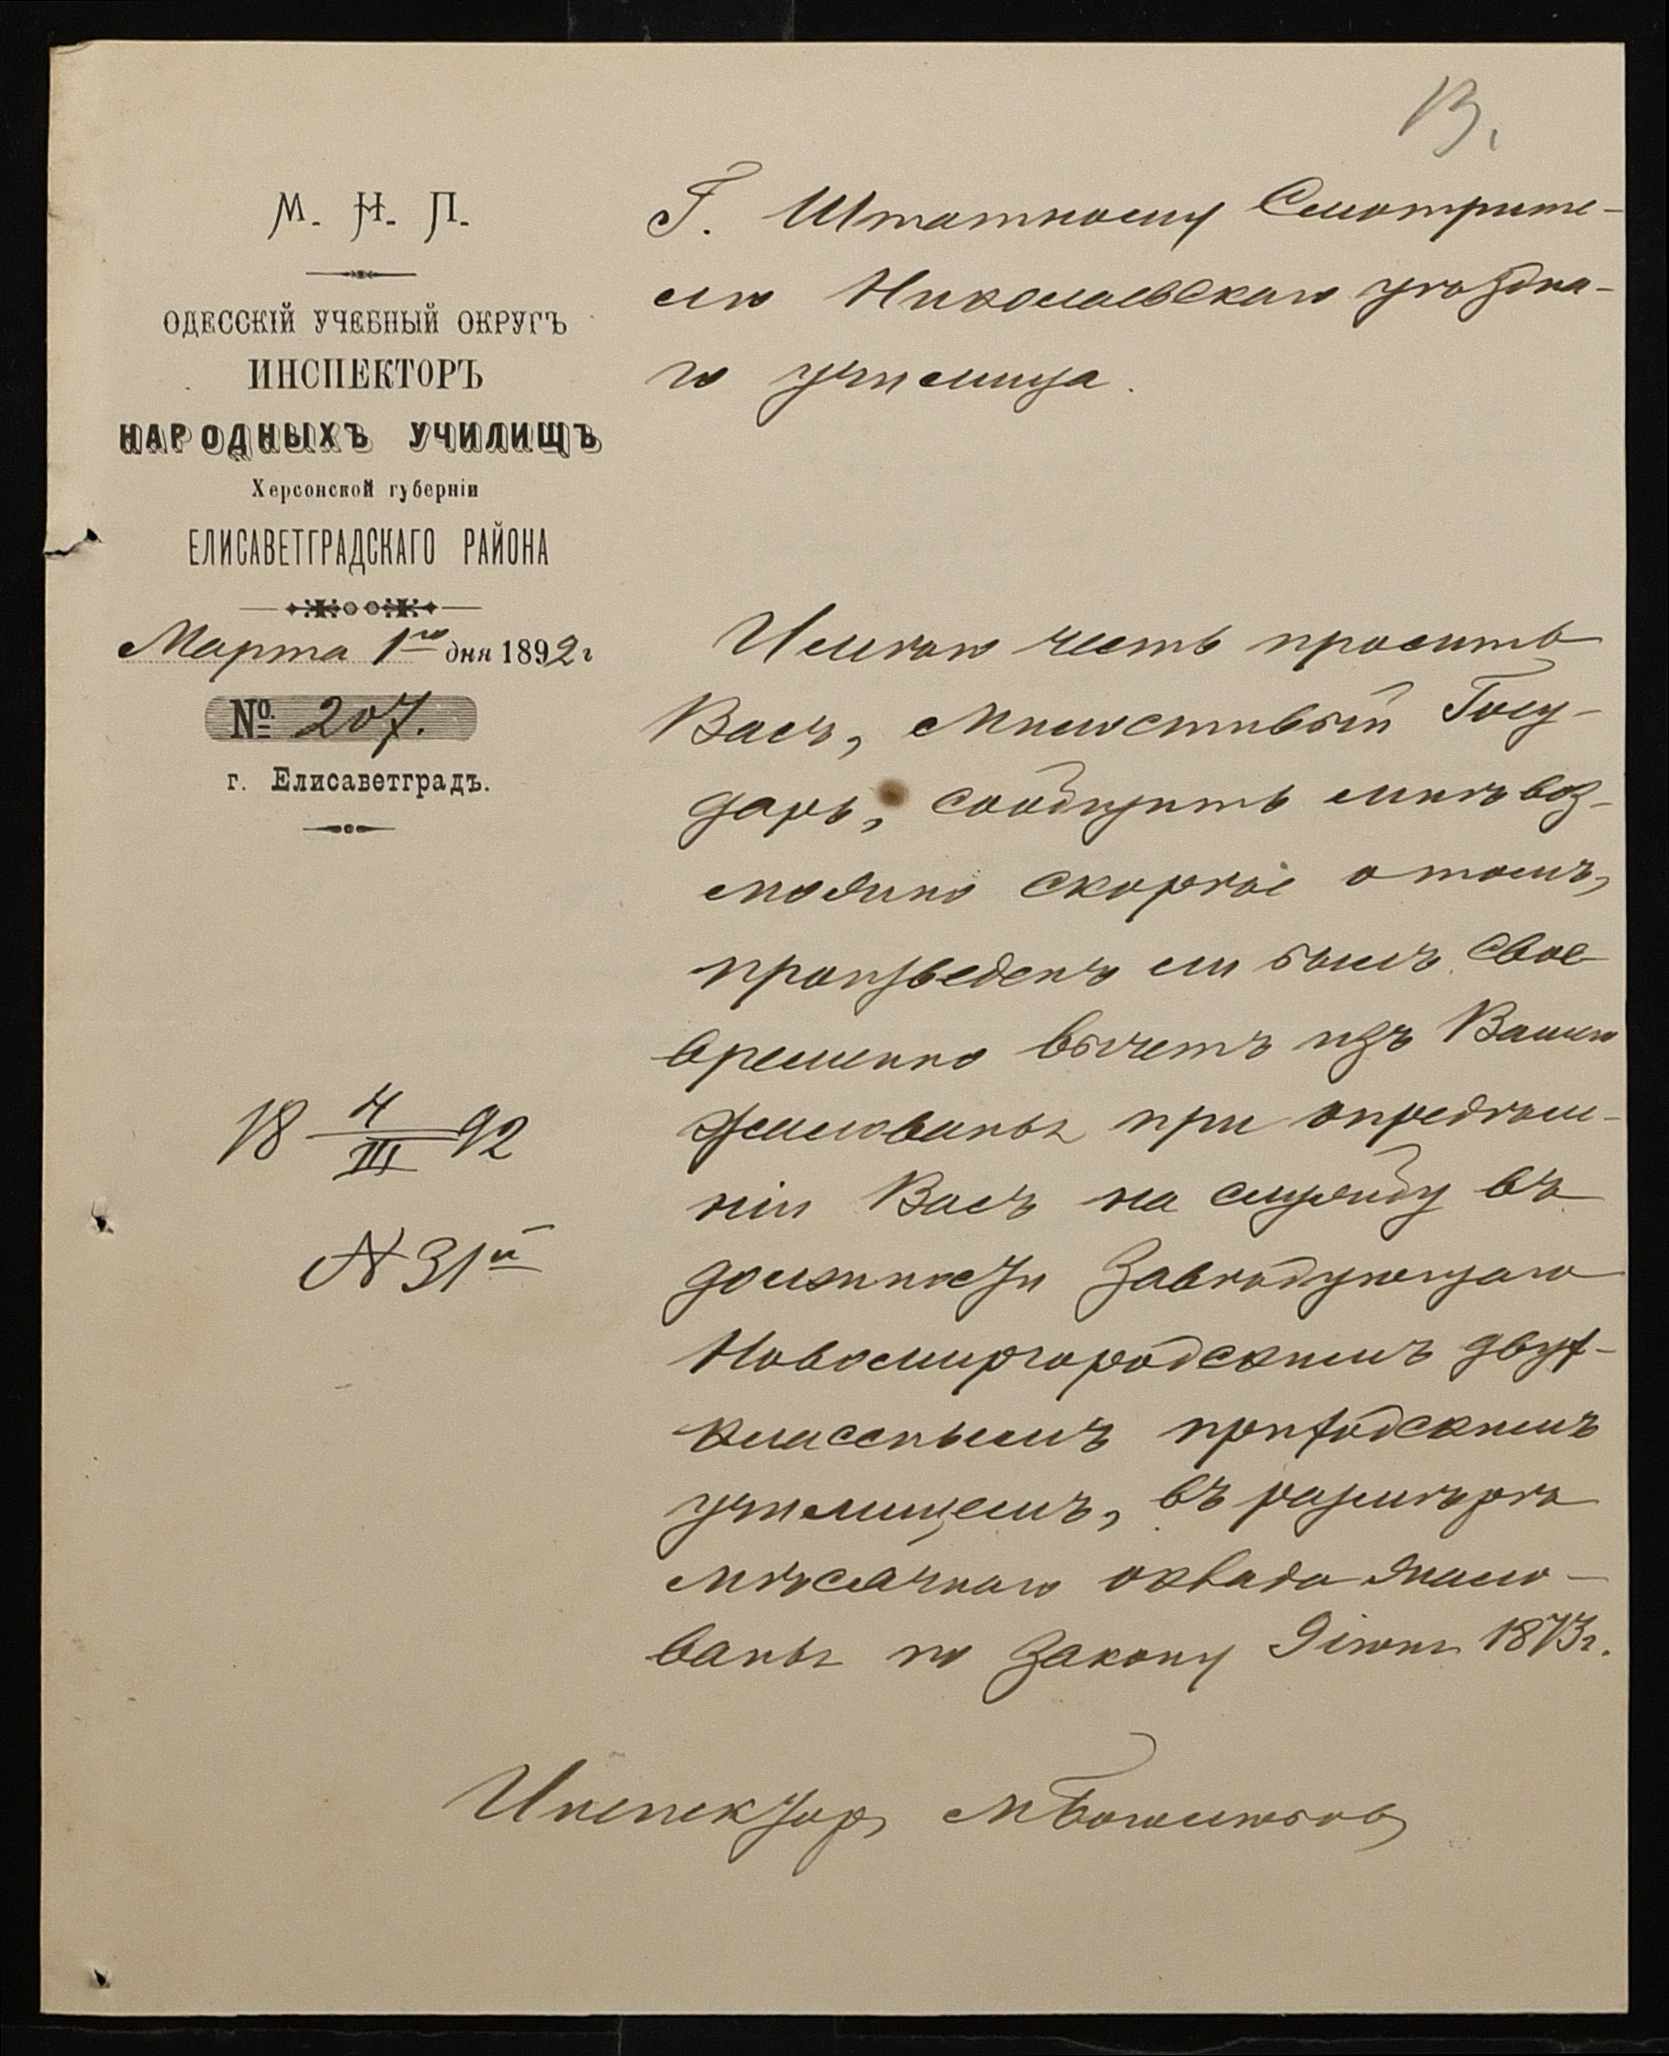 13.
М. Н. П.
ОДЕССКІЙ УЧЕБНЫЙ ОКРУГЪ
ИНСПЕКТОРЪ
НАРОДНЫХЪ УЧИЛИЩЪ
Херсонской губерніи
ЕЛИСАВЕТГРАДСКАГО РАЙОНА
Марта 1го дня 1892 г
№ 207.
г. Елисаветградъ.
18 4/III 92
N 31й
Г. Штатному Смотрите-
лю Николаевскаго уѣздна-
го училища.
Имѣю честь просить
Васъ, Милостивый Госу-
дарь, сообщить мнѣ воз-
можно скорѣе о томъ,
произведенъ ли былъ свое
временно вычетъ изъ Вашего
жалованья при опредѣле-
ніи Васъ на службу въ
должности Завѣдующаго
Новомиргородскимъ двух-
класснымъ приходскимъ
училищемъ, въ размѣрѣ
мѣсячнаго оклада жало-
ванья по закону 9 іюня 1873 г.
Инспекторъ М